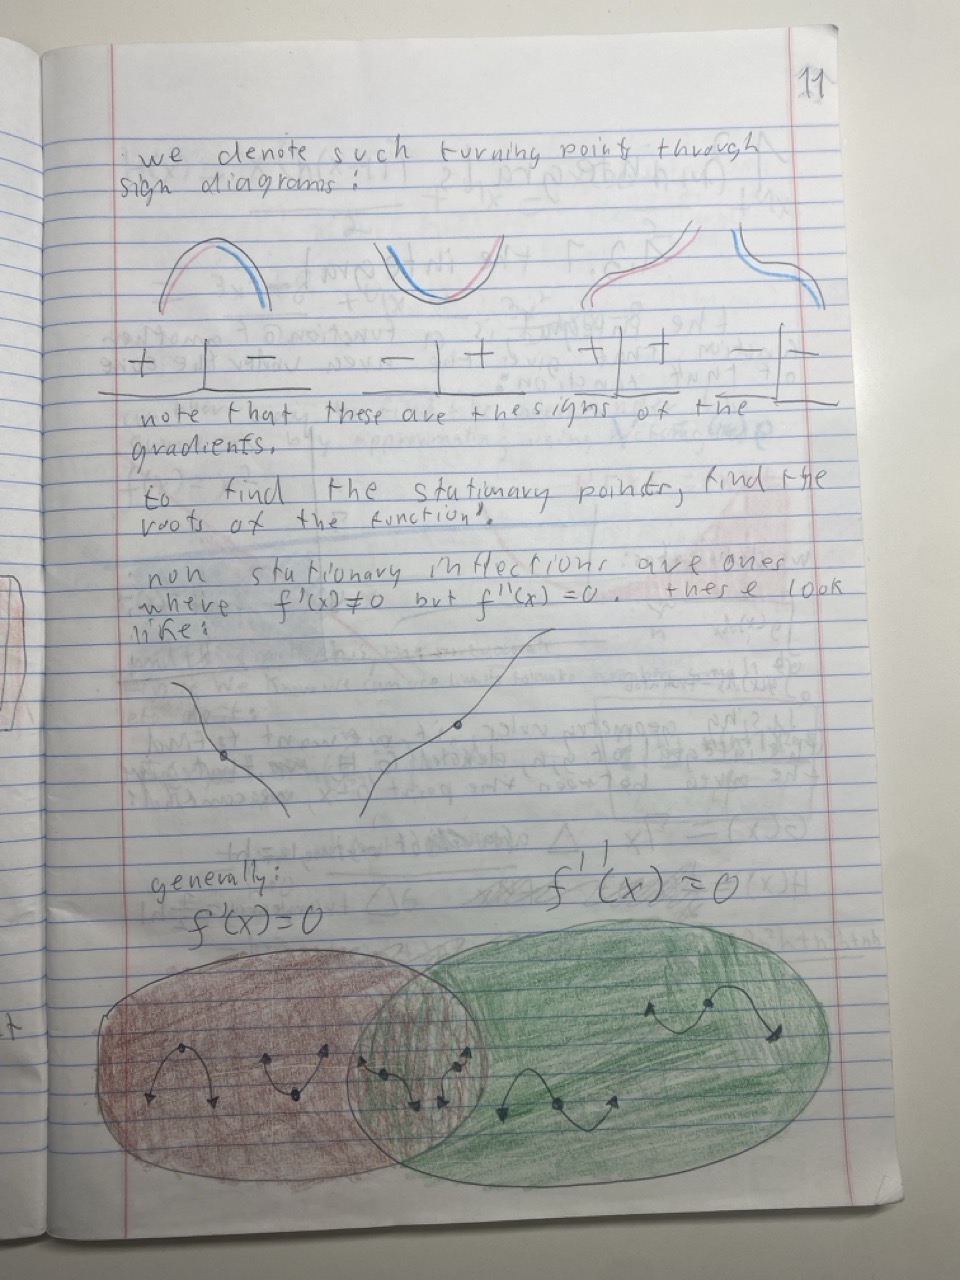 11
we denote such turning points through
sign diagrams:
+ | - - | + + | + - | -
note that these are the signs of the
gradients.
to find the stationary points, find the
roots of the function'.
non stationary inflections are ones
where f'(x) ≠ 0 but f''(x) = 0. these look
like:
generally:
f'(x) = 0
f''(x) = 0